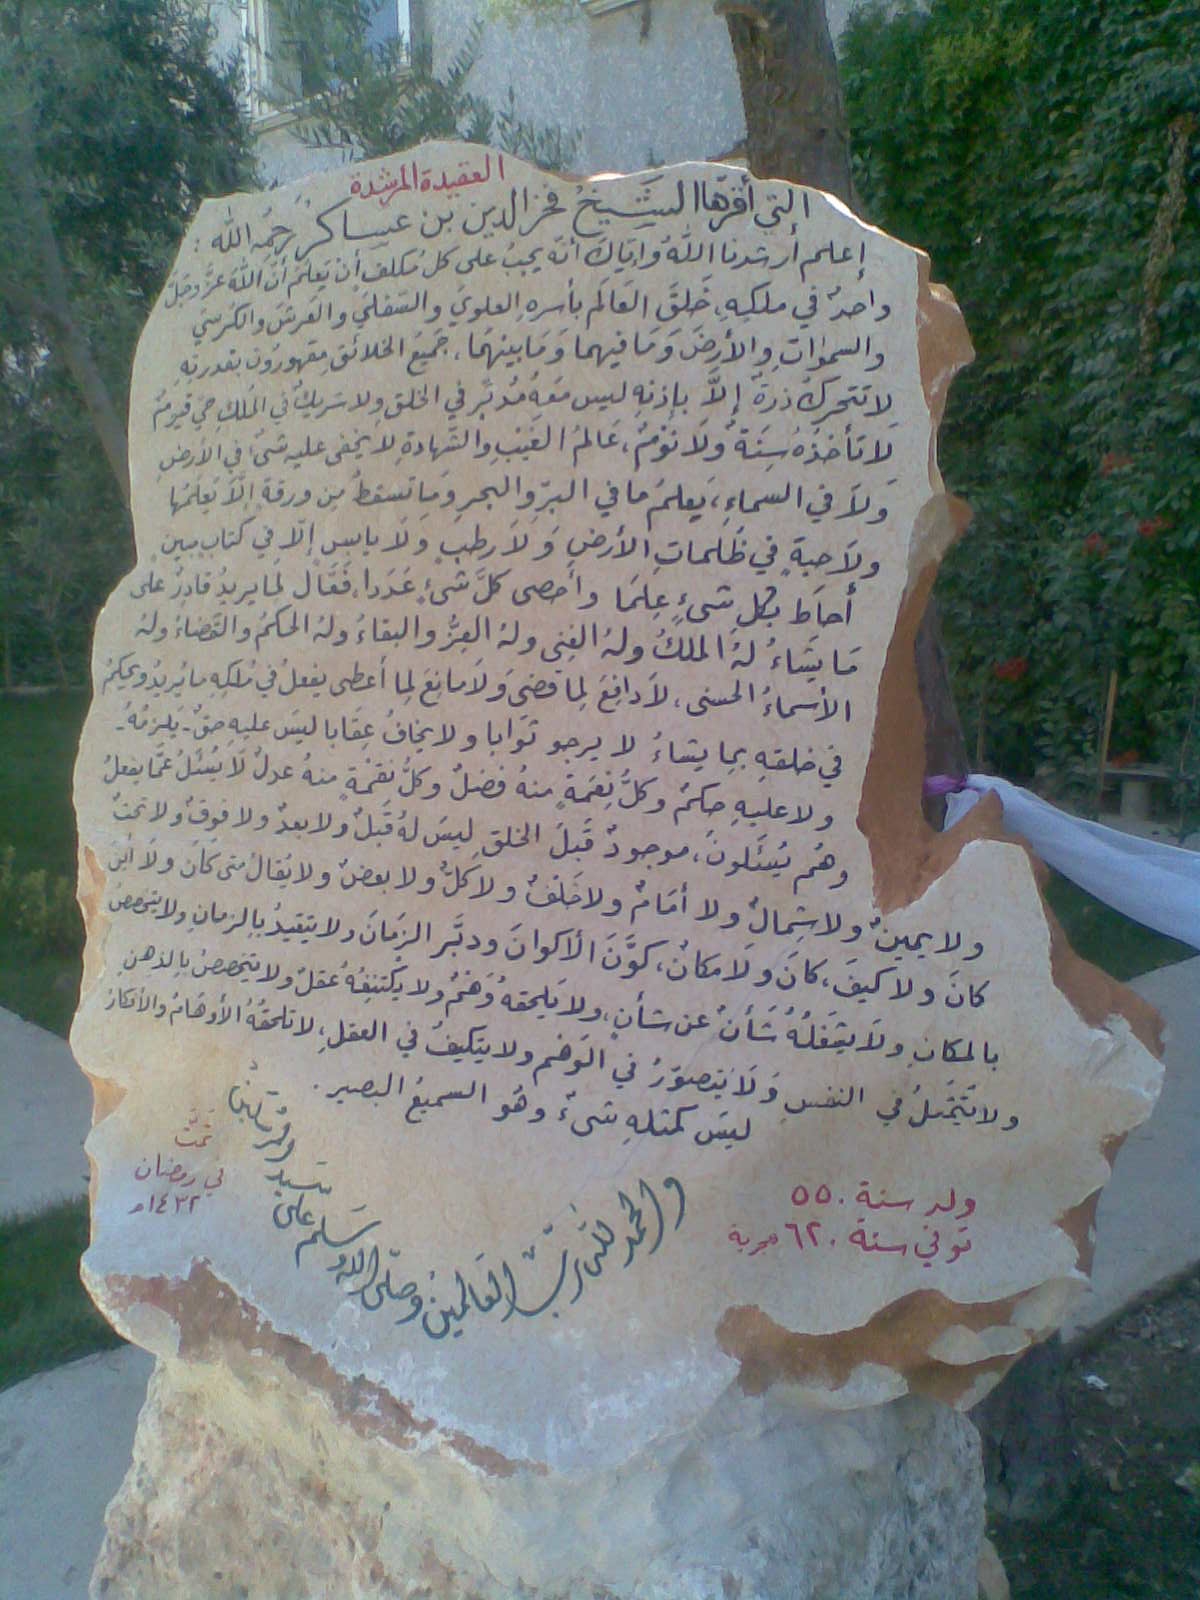 العقيدة المرشدة
التي أقرّها الشيخُ فخر الدين بن عساكر رَحِمَهُ الله :
إعلم أرشدنا اللهُ وإياكَ أنّه يجبُ على كل مُكلفٍ أنْ يَعلمَ أنَّ اللهَ عزَّ وجلّ
واحدٌ في ملكِهِ، خَلقَ العَالَم بأسرهِ العلويَ والسّفليَ والعَرشَ والكُرسيَ
والسمٰواتِ والأرضَ وَمَا فيهما وَمَا بينهُما، جَميعُ الخلائقِ مقهورونَ بقدرتِهِ
لا تتحركُ ذرةٌ إلاَّ بإذنِهِ ليسَ معَهُ مُدبّر في الخلقِ ولا شريكٌ في المُلكِ حيٌ قيومٌ
لاَ تأخذُهُ سِنَةٌ ولاَ نوْمٌ، عَالمُ الغَيْبِ والشّهادةِ لا يخفى عليه شىءٌ في الأرضِ
ولاَ في السماءِ، يَعلمُ ما في البرِّ والبحرِ وَما تسقطُ مِن ورقةٍ إلاّ يَعلمُها
ولاَ حبةٍ في ظُلماتِ الأرضِ وَلاَ رطبٍ وَلاَ يابسٍ إلاّ في كتابٍ مبينٍ
أحاطَ بكلِ شىءٍ عِلمَا وأحصى كلَّ شىءٍ عَدَدا، فَعَّال لِمَا يريدُ قادرٌ على
مَا يشَاءُ لهُ الملكُ ولهُ الغِنى ولهُ العِزُّ والبقاءُ ولهُ الحكمُ والقضاءُ ولهُ
الأسماءُ الحسنى، لاَ دافِعَ لِما قضىَ وَلاَ مانِعَ لِما أعطى يفعلُ في مُلكِهِ ما يُريدُ ويحكمُ
في خلقهِ بما يشاءُ لا يرجو ثَوَابا ولا يخافُ عِقَابا ليسَ عليهِ حقٌ يَلزمُهُ
ولا عليهِ حكمٌ وكلُّ نِعْمَةٍ منهُ فضلٌ وكلُّ نقمْةٍ منهُ عدلٌ لاَ يُسْئَلُ عَمَّا يفعلُ
وهُم يُسْئَلونَ، موجودٌ قَبلَ الخلقِ ليسَ لهُ قَبلٌ ولا بعدٌ ولا فوقٌ ولا تحتٌ
ولا يمينٌ ولا شِمالٌ ولا أمَامٌ ولا خَلفٌ ولا كلٌّ ولا بعضٌ ولا يُقالُ متى كَانَ ولاَ أينَ
كانَ ولا كيفَ، كانَ ولاَ مكانٌ، كوَّنَ الأكوانَ ودبَّر الزمَانَ ولا يتقيدُ بالزمانِ ولا يتخصصُ
بالمكانِ ولاَ يشْغَلُهُ شَأنٌ عن شأنٍ، ولا يَلحقهُ وَهْمٌ ولا يَكتنِفُهُ عقلٌ ولا يتخصصُ بالذهنِ
ولا يَتَمثلُ في النفسِ وَلاَ يتصوّرُ في الوَهْمِ ولا يتكيفُ في العقلِ، لا تلحقُهُ الأوهَامُ والأفكارُ
ليسَ كمثلهِ شىءٌ وهُو السميعُ البصير.
والحمد لله ربّ العَالمين وصلّى الله وسَلم على سيد
تمّت
في رمضان
١٤٣٢ه
ولد سنة ٥٥٠
توفي سنة ٦٢٠ هجرية